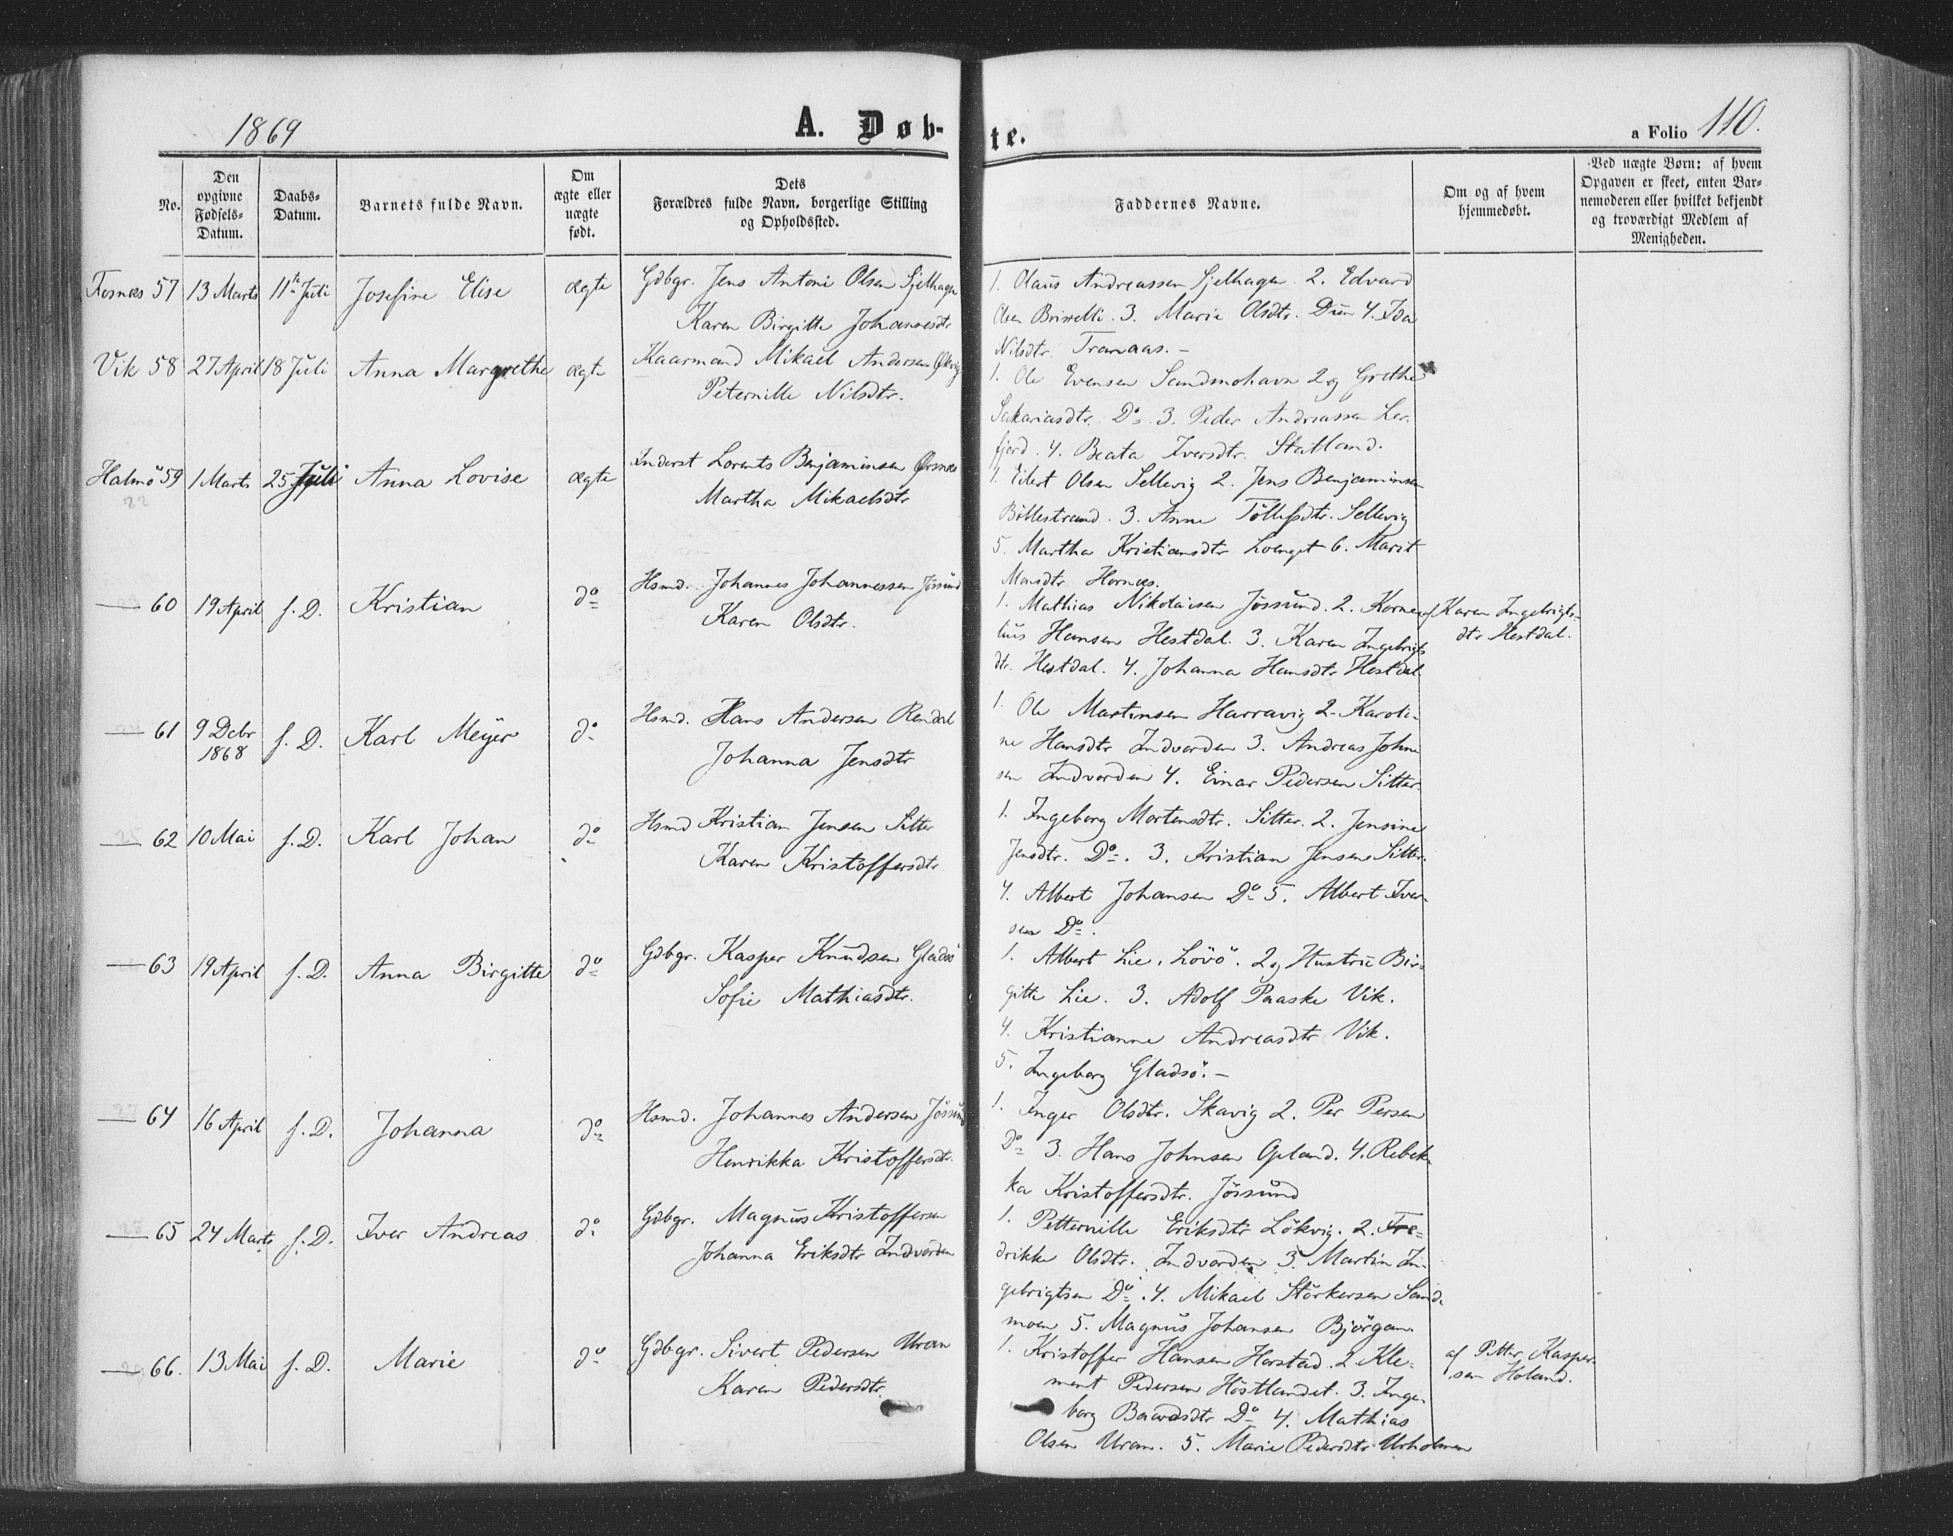 1869
A. Døb-
te.
a Folio 110.
No.
Den
opgivne
Fødsels-
Datum.
Daabs-
Datum.
Barnets fulde Navn.
Om
ægte eller
uægte
født.
Dets
Forældres fulde Navn, borgerlige Stilling
og Opholdssted.
Faddernes Navne.
Om og af hvem
hjemmedøbt.
Ved uægte Børn: af hvem
Opgaven er skeet, enten Bar-
nemoderen eller hvilket bekjendt
og troværdigt Medlem af
Menigheden.
Fosnæs 57 13 Marts 11te Juli Josefine Elise ægte Gdbgr. Jens Antoni Olsen Sjelhagen
Karen Birgitte Johannesdtr
1. Olaus Andreassen Sjelhagen 2. Edvard
Olsen 3. Marie Olsdtr. Dun 4. Ida
Nilsdtr. Tranaas. -
Vik 58 27 April 18 Juli Anna Margrethe ægte Kaarmand Mikael Andersen
Peternille Nilsdtr.
1. Ole Evensen Sandmohavn 2 og Grethe
Sakariasdtr. Do. 3. Peder Andreassen Ler-
fjord. 4. Beata Iversdtr. Statland.
Halmö 59 1 Marts 25 Juli Anna Lovise ægte Inderst Lorents Benjaminsen Örsnæs
Martha Mikaelsdtr
1. Eilert Olsen Sellevig 2. Jens Benjaminsen
Böllestrand. 3. Anne Tollefsdtr. Sellevig
5. Martha Kristiansdtr Loenget 6. Marit
Monsdtr. Hornæs.
— 60 19 April f. D. Kristian do Hsmd. Johannes Johannessen Jössund
Karen Olsdtr.
1. Mathias Nikolaisen Jössund. 2. Korne-
lius Hansen Hestdal. 3. Karen Ingebrigts
dtr. Hestdal. 4. Johanna Hansdtr Hestdal
af Karen Ingebrigts-
dtr Hestdal.
— 61 9 Debr
1868 f. D. Karl Meÿer do Hsmd. Hans Andersen Rendal
Johanna Jensdtr
1. Ole Martinsen Harravig 2. Karoli-
ne Hansdtr Indvorden 3. Andreas John-
sen Indvorden 4. Einar Pedersen Sitter.
— 62 10 Mai f. D. Karl Johan do Hsmd Kristian Jensen Sitter
Karen Kristoffersdtr
1. Ingeborg Mortensdtr. Sitter. 2. Jensine
Jensdtr. Do. 3. Kristian Jensen Sitter.
4. Albert Johansen Do 5. Albert Iver-
sen Do.
— 63 19 April f. D. Anna Birgitte do Gdbgr. Kasper Knudsen Gladsö
Sofie Mathiasdtr.
1. Albert Lie, Lövö. 2 og Hustru Bir-
gitte Lie. 3. Adolf Paaske Vik.
4. Kristianne Andreasdtr Vik.
5. Ingeborg Gladsö. -
— 64 16 April f. D. Johanna do Hsmd. Johannes Andersen Jössund
Henrikka Kristoffersdtr.
1. Inger Olsdtr. Skavig 2. Per Persen
Do 3. Hans Johnsen Opland. 4. Rebek-
ka Kristoffersdtr. Jössund
— 65 24 Marts f. D. Iver Andreas do Gdbgr. Magnus Kristoffersen
Johanna Eriksdtr Indvorden
1. Petternille Eriksdtr Lökvig. 2. Fre-
drikke Olsdtr. Indvorden 3. Martin In-
gebrigtsen Do. 4. Mikael Störkersen Sand-
moen 5. Magnus Johansen Björgan.
— 66. 13 Mai f. D. Marie do Gdbgr. Sivert Pedersen Uran
Karen Pedersdtr.
1. Kristoffer Hansen Horstad. 2 Kle-
ment Pedersen Höstlandet. 3. Inge-
borg Baardsdtr Do 4. Mathias
Olsen Uran. 5. Marie Pedersdtr Urholmen
af Petter Kasper-
sen Holand.